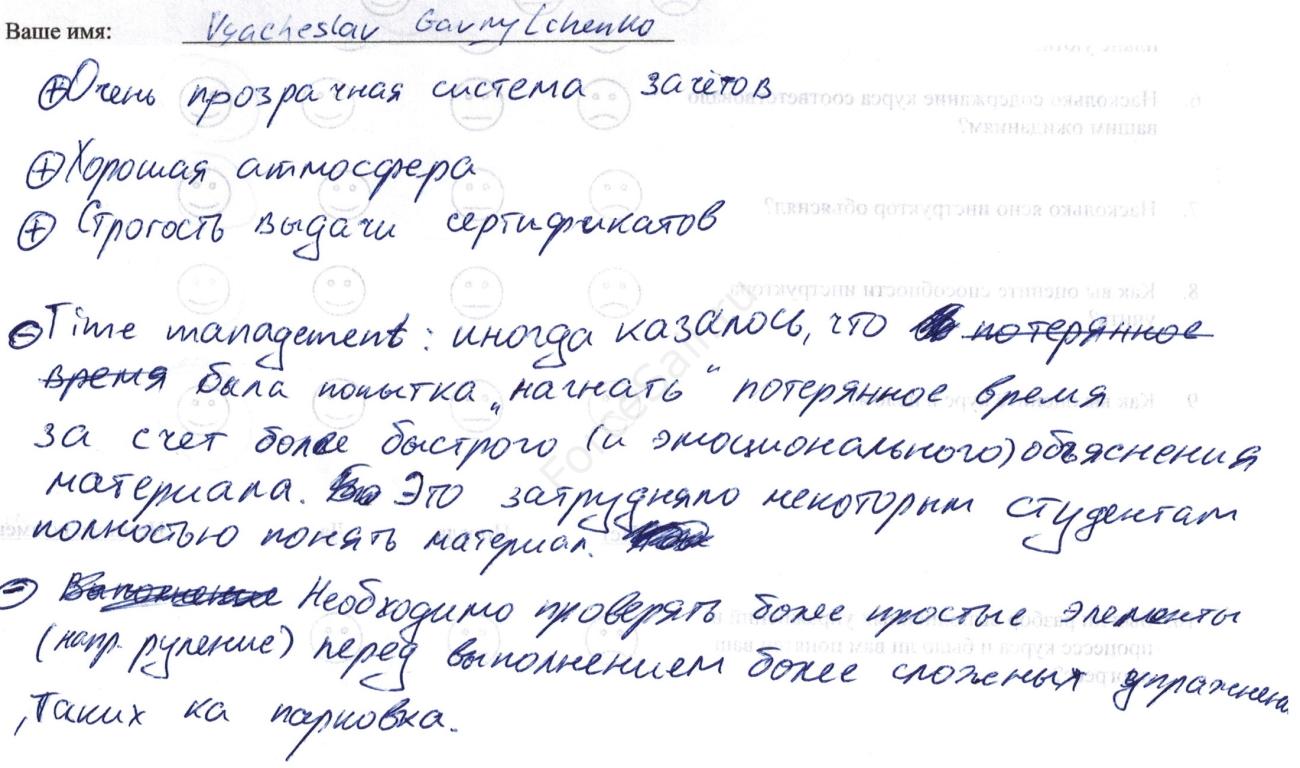 Ваше имя: Vyacheslav Gavrylchenko
⊕ Очень прозрачная система зачётов
⊕ Хорошая атмосфера
⊕ Строгость выдачи сертификатов
⊖ Time management: иногда казалось, что потерянное
время была попытка „нагнать" потерянное время
за счет более быстрого (и эмоционального) объяснения
материала. Это затрудняло некоторым студентам
полностью понять материал.
⊖ Необходимо проверять более простые элементы
(напр. руление) перед выполнением более сложных упражнени
, таких ка парковка.
ForceSail.ru
6. Насколько содержание курса соответствовало
вашим ожиданиям?
7. Насколько ясно инструктор объяснял?
8. Как вы оцените способности инструктора
9